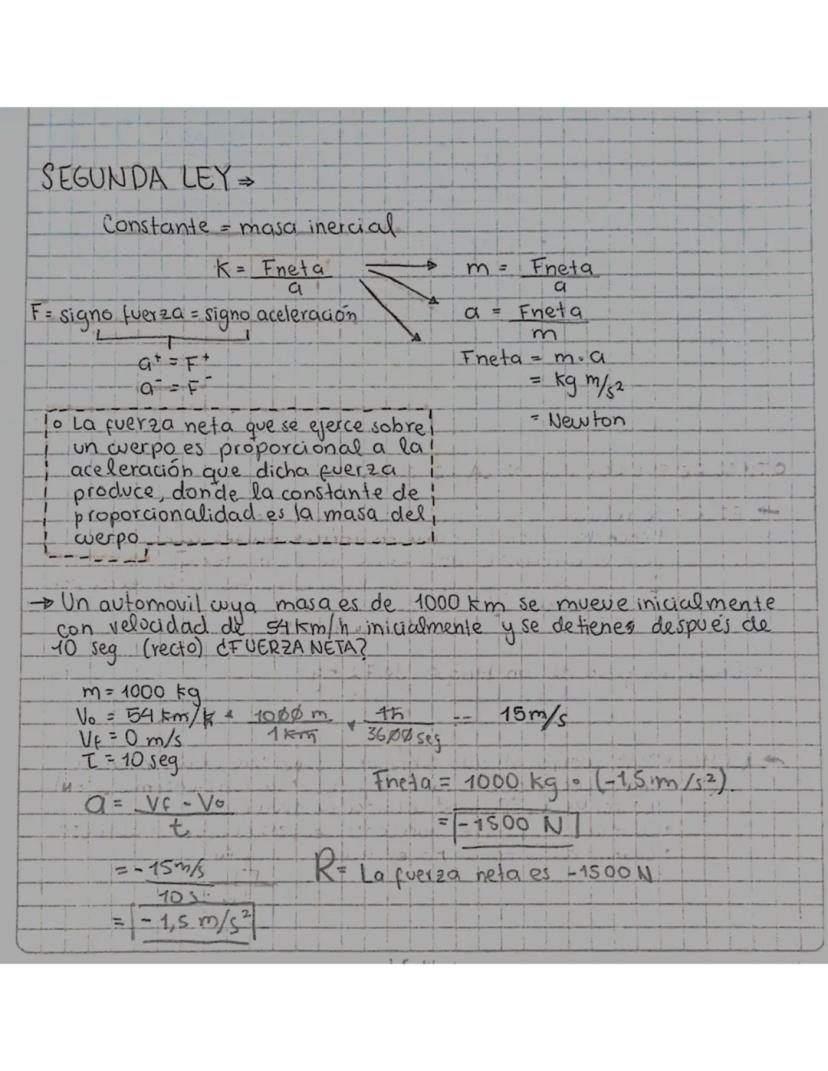 SEGUNDA LEY ⇒
Constante = masa inercial
K = Fneta / a
m = Fneta / a
F = signo fuerza = signo aceleración
a = Fneta / m
a⁺ = F⁺
a⁻ = F⁻
Fneta = m · a
= kg m/s²
= Newton
o La fuerza neta que se ejerce sobre
un cuerpo es proporcional a la
aceleración que dicha fuerza
produce, donde la constante de
proporcionalidad es la masa del
cuerpo
→ Un automovil cuya masa es de 1000 km se mueve inicialmente
con velocidad de 54 km/h inicialmente y se detienes después de
10 seg (recto) ¿FUERZA NETA?
m = 1000 kg
Vo = 54 km/h * 1000 m / 1 km * 1h / 3600 seg = 15 m/s
Vf = 0 m/s
T = 10 seg
a = Vf - Vo / t
Fneta = 1000 kg · (-1,5 m/s²)
= -1500 N
= -15 m/s / 10 s
R = La fuerza neta es -1500 N
= -1,5 m/s²